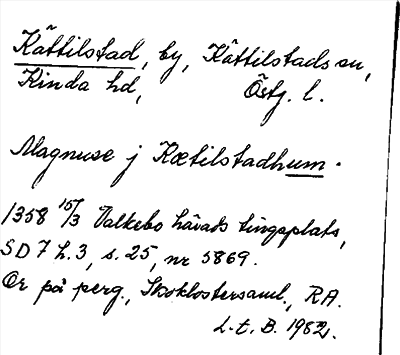 Kättilstad, by, Kättilstads sn,
Kinda hd, Östg. l.
Magnuse j Kætilstadhum.
1358 15/3 Valkebo härads tingsplats,
SD 7 h. 3, s. 25, nr 5869.
Or på perg., Skoklostersaml., RA.
L.t. B. 1982.